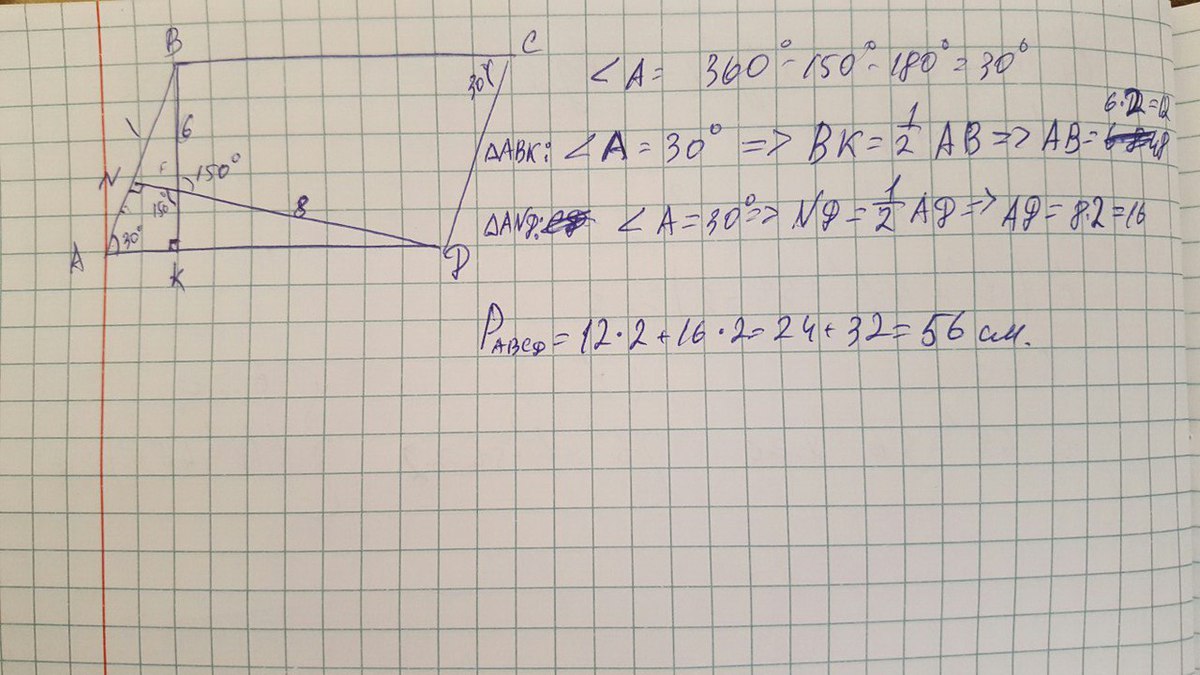 B
C
30°
6
N
150°
150°
8
30°
A
K
D
∠A = 360° - 150° - 180° = 30°
6·2=12
△ABK: ∠A = 30° => BK = 1/2 AB => AB =
△AND: ∠A = 30° => ND = 1/2 AD => AD = 8·2 = 16
P ABCD = 12·2 + 16·2 = 24 + 32 = 56 см.